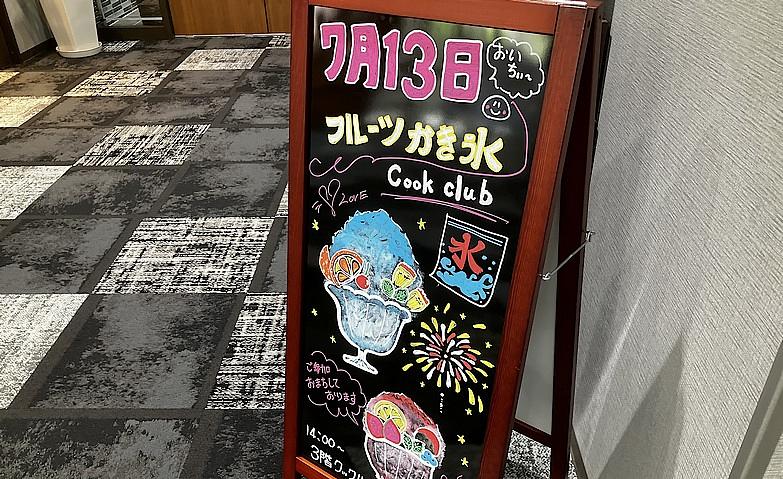 7月13日
おい
ちぃ〜
フルーツかき氷
Cook club
LOVE
氷
ご参加
おまちして
おります
14:00〜
3階クック